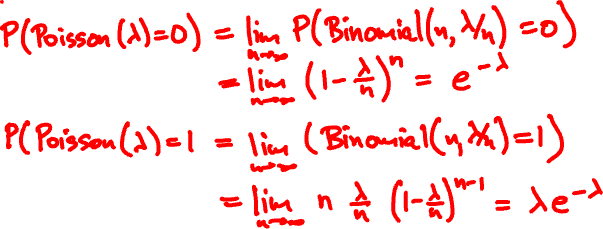 P(Poisson(λ)=0) = lim n→∞ P(Binomial(n, λ/n) =0)
= lim n→∞ (1-λ/n)^n = e^-λ
P(Poisson(λ)=1 = lim n→∞ (Binomial(n, λ/n)=1)
= lim n→∞ n λ/n (1-λ/n)^n-1 = λe^-λ